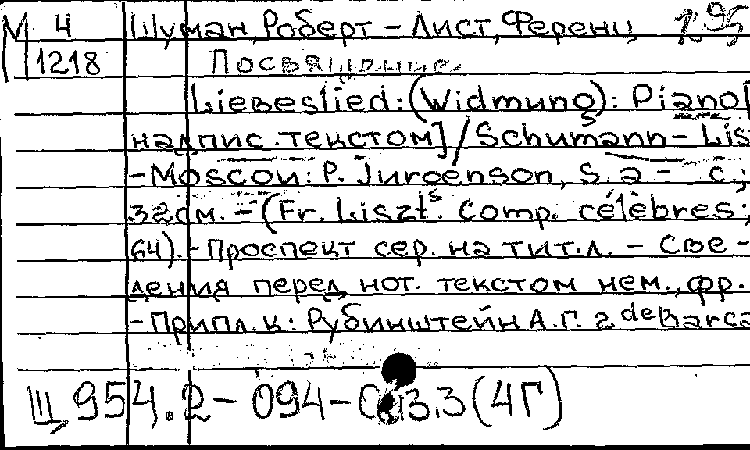 М 4 Шуман, Роберт – Лист, Ференц
1218 Посвящение
Liebeslied: (Widmung): Piano[
надпис. текстом] / Schumann – Lis
– Moscou: P. Jurgenson, s. a –  c.;
32см. – (Fr. Liszt's. Comp. célèbres;
64). – Проспект сер. на тит.л. – Све –
дения перед нот. текстом нем., фр.
– Припл. к: Рубинштейн А.Г. 2 de Barca
Щ 954.2 – 094 – 3.3 (4Г)